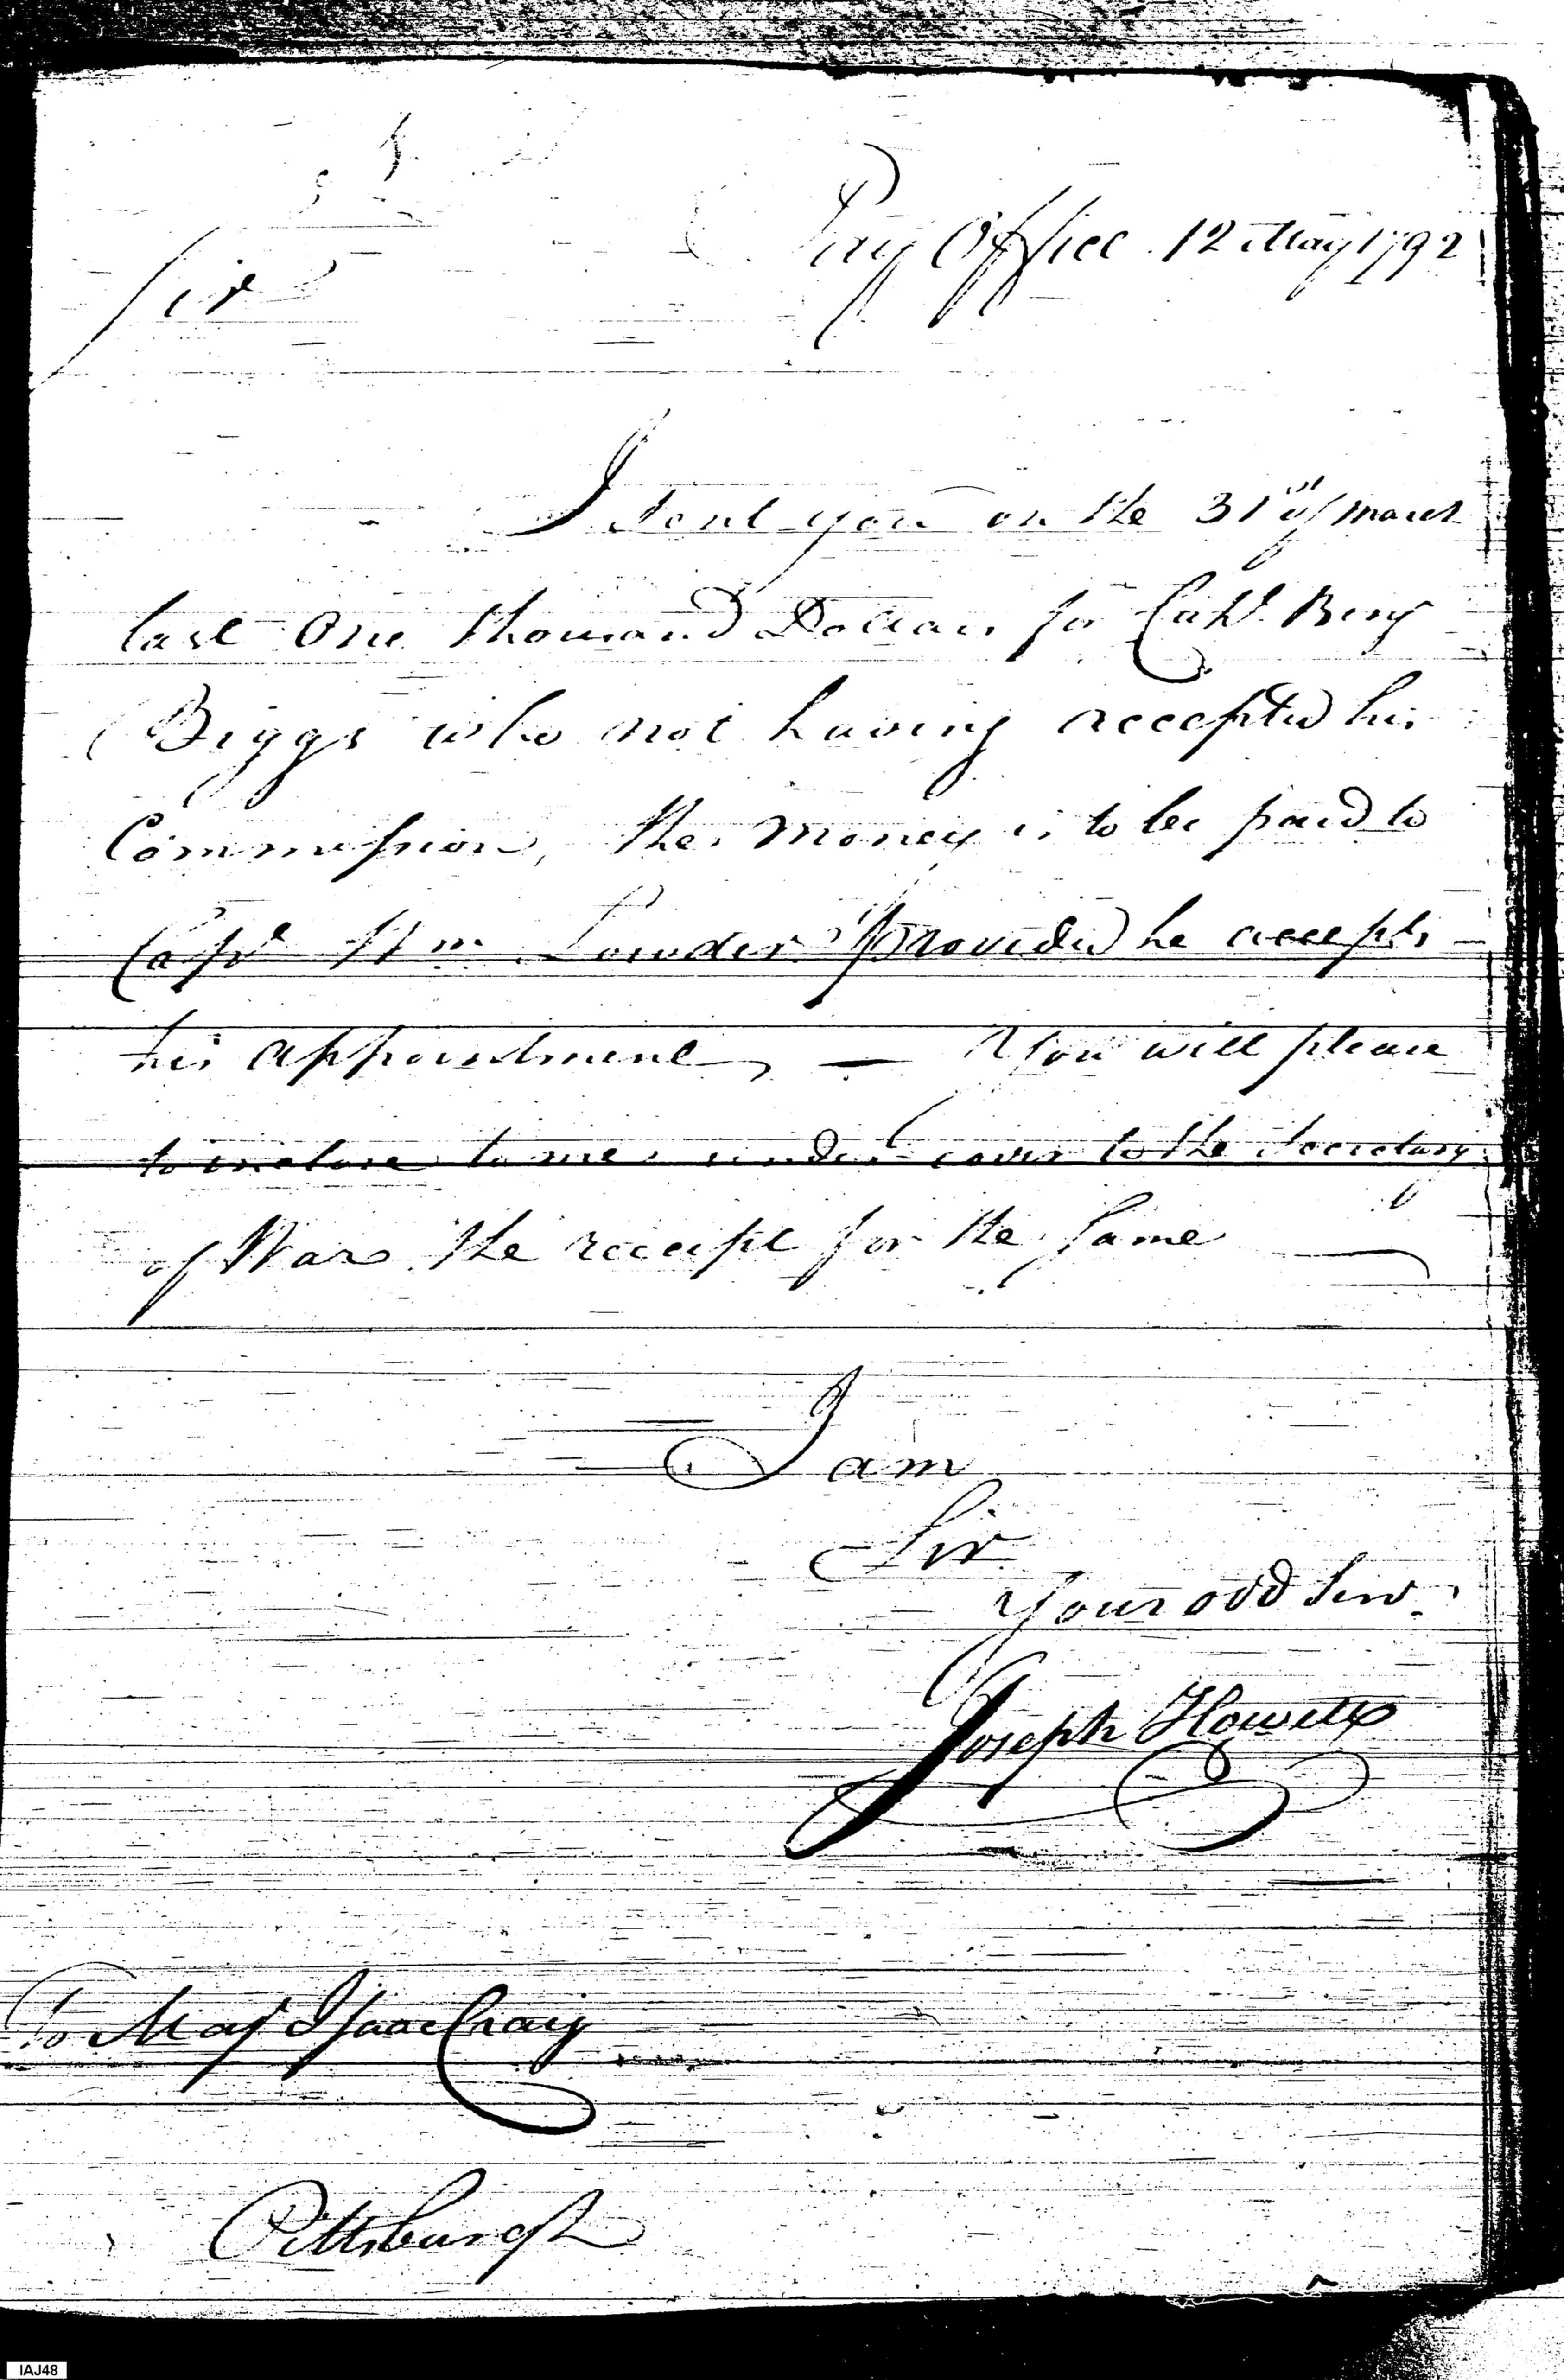 Pay Office 12 May 1792
Sir
I sent you on the 31st of March
last One thousand Dollars for Capt. Benj
Biggs who not having accepted his
Commission, the money is to be paid to
Capt Wm Lowder provided he accepts
his appointment, — You will please
to inclose to me under cover to the Secretary
of War the receipt for the same
I am
Sir
Your obd Serv.
Joseph Howell
To Maj Isaac Craig
Pittsburgh
IAJ48